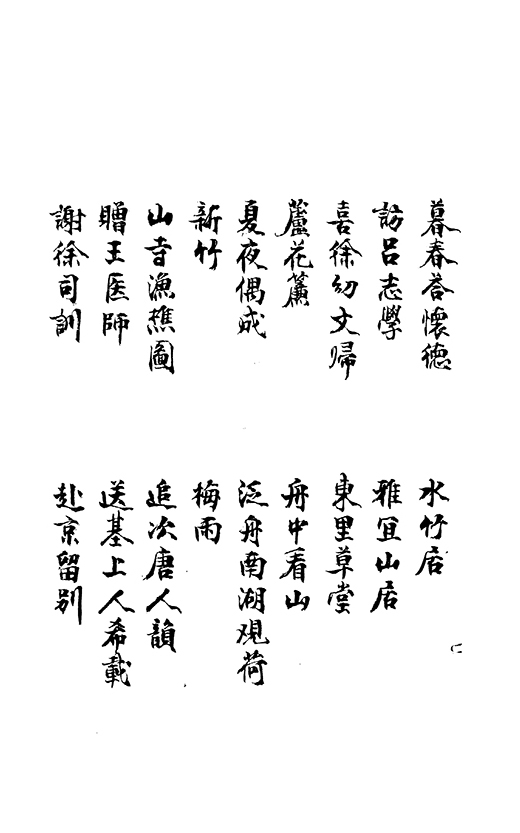 暮春荅懷德
水竹居
訪呂志學
雅宜山居
喜徐幼文歸
東里草堂
蘆花簾
舟中看山
夏夜偶成
泛舟南湖观荷
新竹
梅雨
山寺漁樵圖
追次唐人韻
贈王医師
送基上人希載
謝徐司訓
赴京留别